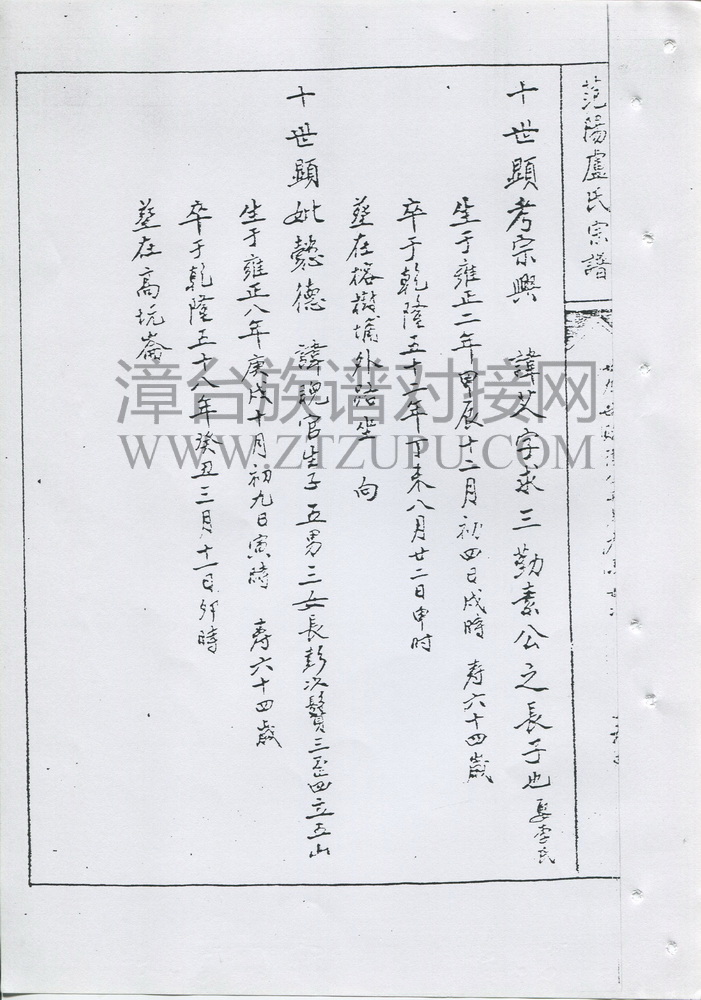 范陽盧氏宗譜
十世顯考宗興 諱文字求三勤素公之長子也 娶李氏
生于雍正二年甲辰十二月初四日戌時 壽六十四歲
卒于乾隆五十二年丁未八月廿二日申时
塟在榕樹墘外 坐 向
十世顯妣懿德 諱 官生子五男三女長彭次 三 四立五山
生于雍正八年庚戌十月初九日寅時 壽六十四歲
卒于乾隆五十八年癸丑三月十一日卯時
塟在高坑崙
漳台族谱对接网
WWW.ZTZUPU.COM